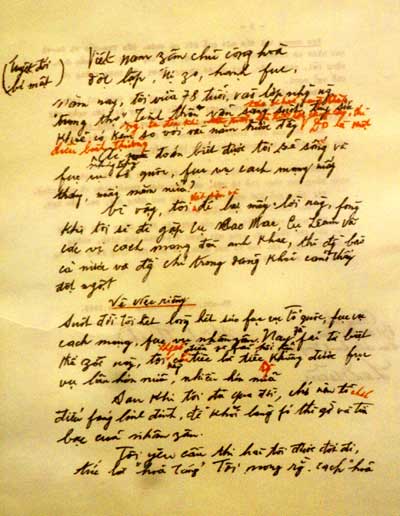 (Tuyệt đối
bí mật)
Việt Nam zân chủ cộng hoà
độc lập, tự zo, hạnh fúc
Năm nay, tôi vừa 78 tuổi, vào lớp những ng
"trung thọ". Tinh thần vẫn sáng suốt,
khoẻ có kém so với vài năm trước đây.
điều bình thường
Nhưng ai mà đoán biết được tôi sẽ sống và
fục vụ tổ quốc, fục vụ cách mạng mấy
tháng, mấy năm nữa?
Vì vậy, tôi để lại mấy lời này, fòng
khi tôi sẽ đi gặp cụ Các Mác, cụ Lênin và
các vị cách mạng đàn anh khác, thì đ/b
cả nước và đ/c trong đảng khỏi cảm thấy
đột ngột
Về việc riêng
Suốt đời tôi hết lòng hết sức fục vụ Tổ quốc, fục vụ
cách mạng, fục vụ nhân zân. Nay fải từ biệt
thế zới này, tôi chỉ tiếc là tiếc không được fục
vụ lâu hơn nữa, nhiều hơn nữa
Sau khi tôi đã qua đời, chớ nên tổ chức
điếu fúng linh đình, để khỏi lãng fí thì zờ và tiền
bạc của nhân zân.
Tôi yêu cầu thi hài tôi được đốt đi,
tức là "hoả táng". Tôi mong rằng cách "hoả